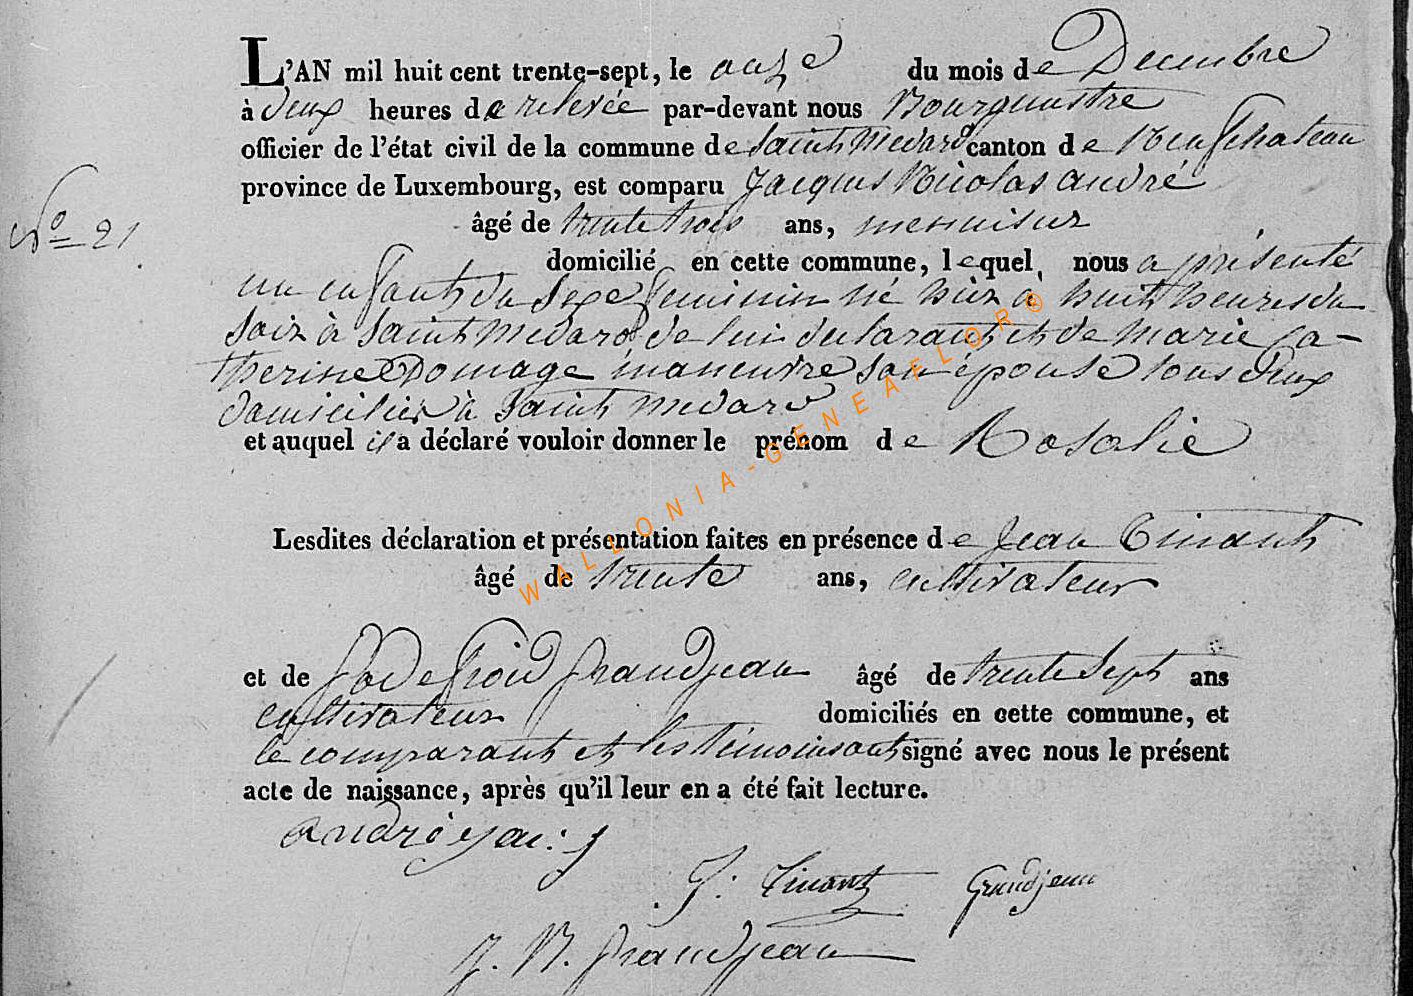 L'AN mil huit cent trente-sept, le onze du mois de Decembre
à deux heures de relevée par-devant nous Bourgmestre
officier de l'état civil de la commune de Saint Medard canton de Neufchateau
province de Luxembourg, est comparu Jacques Nicolas andré
N° 21
âgé de trente trois ans, menuisier
domicilié en cette commune, lequel nous a présenté
un enfant du Sexe feminin né hier à huit heures du
soir à Saint Medard de lui declarant et de Marie Ca-
therine Domage maneuvre son épouse tous deux
domiciliés à Saint Medard
et auquel il a déclaré vouloir donner le prénom de Rosalie
Lesdites déclaration et présentation faites en présence de Jean Tinant
âgé de trente ans, cultivateur
et de Godefroid Grandjean âgé de trente Sept ans
cultivateur domiciliés en cette commune, et
le comparant et les témoins ont signé avec nous le présent
acte de naissance, après qu'il leur en a été fait lecture.
andré jac: 
J: Tinant Grandjean
J. N. Grandjean
WALLONIA-GENEAFLOR®